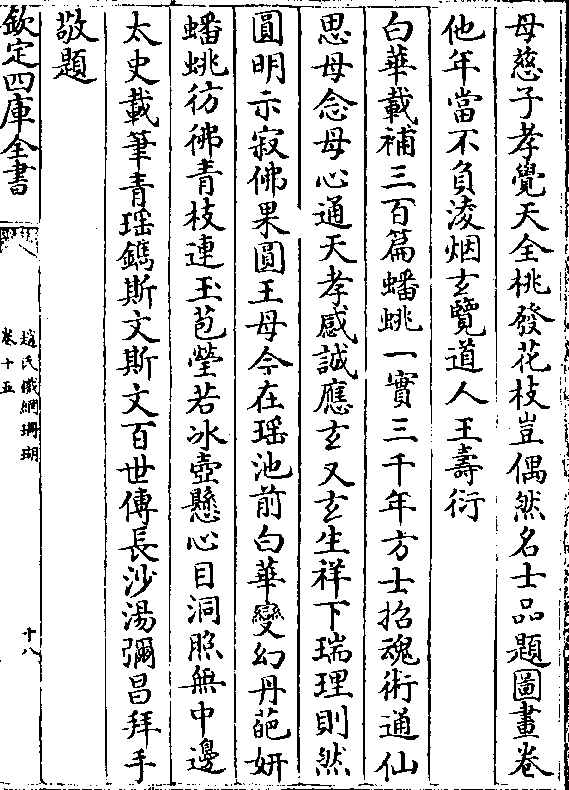 母慈子孝覺天全桃發花枝豈偶然名士品題圖畫卷
他年當不負淩烟玄覽道人王壽衍
白華載補三百篇蟠蛾一實三千年方士招魂術通仙
思母念母心通天孝感誠應玄又玄生祥下瑞理則然
圓明示寂佛果圓王母今在瑶池前白華變幻丹葩妍
蟠蛾彷彿青枝連玉苞瑩若冰壺懸心目洞照無中邊
太史載筆青瑶鐫斯文斯文百世傳長沙湯彌昌拜手
敬題
欽定四庫全書
趙氏鐵網珊瑚
卷十五
十八